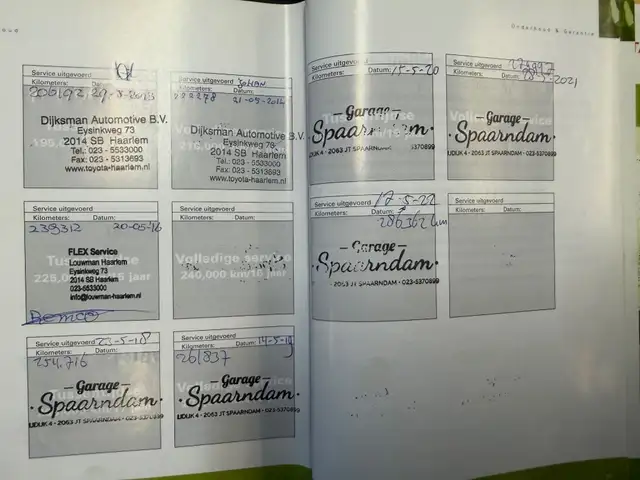 Onderhoud & Garantie
Service uitgevoerd
Kilometers: Datum:
206192 29-3-2013
Dijksman Automotive B.V.
Eysinkweg 73
2014 SB Haarlem
Tel.: 023 - 5533000
Fax: 023 - 5313693
www.toyota-haarlem.nl
Service uitgevoerd Johan
Kilometers: Datum:
222278 21-05-2014
Dijksman Automotive B.V.
Eysinkweg 73
2014 SB Haarlem
Tel.: 023 - 5533000
Fax: 023 - 5313693
www.toyota-haarlem.nl
Service uitgevoerd
Kilometers: Datum:
239312 20-05-16
FLEX Service
Louwman Haarlem
Eysinkweg 73
2014 SB Haarlem
023-5533000
info@louwman-haarlem.nl
225,000 jaar
Remco
Service uitgevoerd
Kilometers: Datum:
Volledige service
240,000 km/16 jaar
Service uitgevoerd 23-5-18
Kilometers: Datum:
254.716
Garage
Spaarndam
LIDIJK 4 - 2063 JT SPAARNDAM - 023-5370899
Service uitgevoerd
Kilometers: Datum: 14-5-19
261837
Garage
Spaarndam
LIDIJK 4 - 2063 JT SPAARNDAM - 023-5370899
Service uitgevoerd
Kilometers: Datum: 15-5-20
Garage
Spaarndam
4 - 2063 JT SPAARNDAM 5370899
Service uitgevoerd
Kilometers: Datum: 2021
Garage
Spaarndam
LIDIJK 4 - 2063 JT SPAARNDAM - 023-5370899
Service uitgevoerd 17-5-22
Kilometers: Datum:
286362 km
Garage
Spaarndam
2063 JT SPAARNDAM - 023-5370899
Service uitgevoerd
Kilometers: Datum: